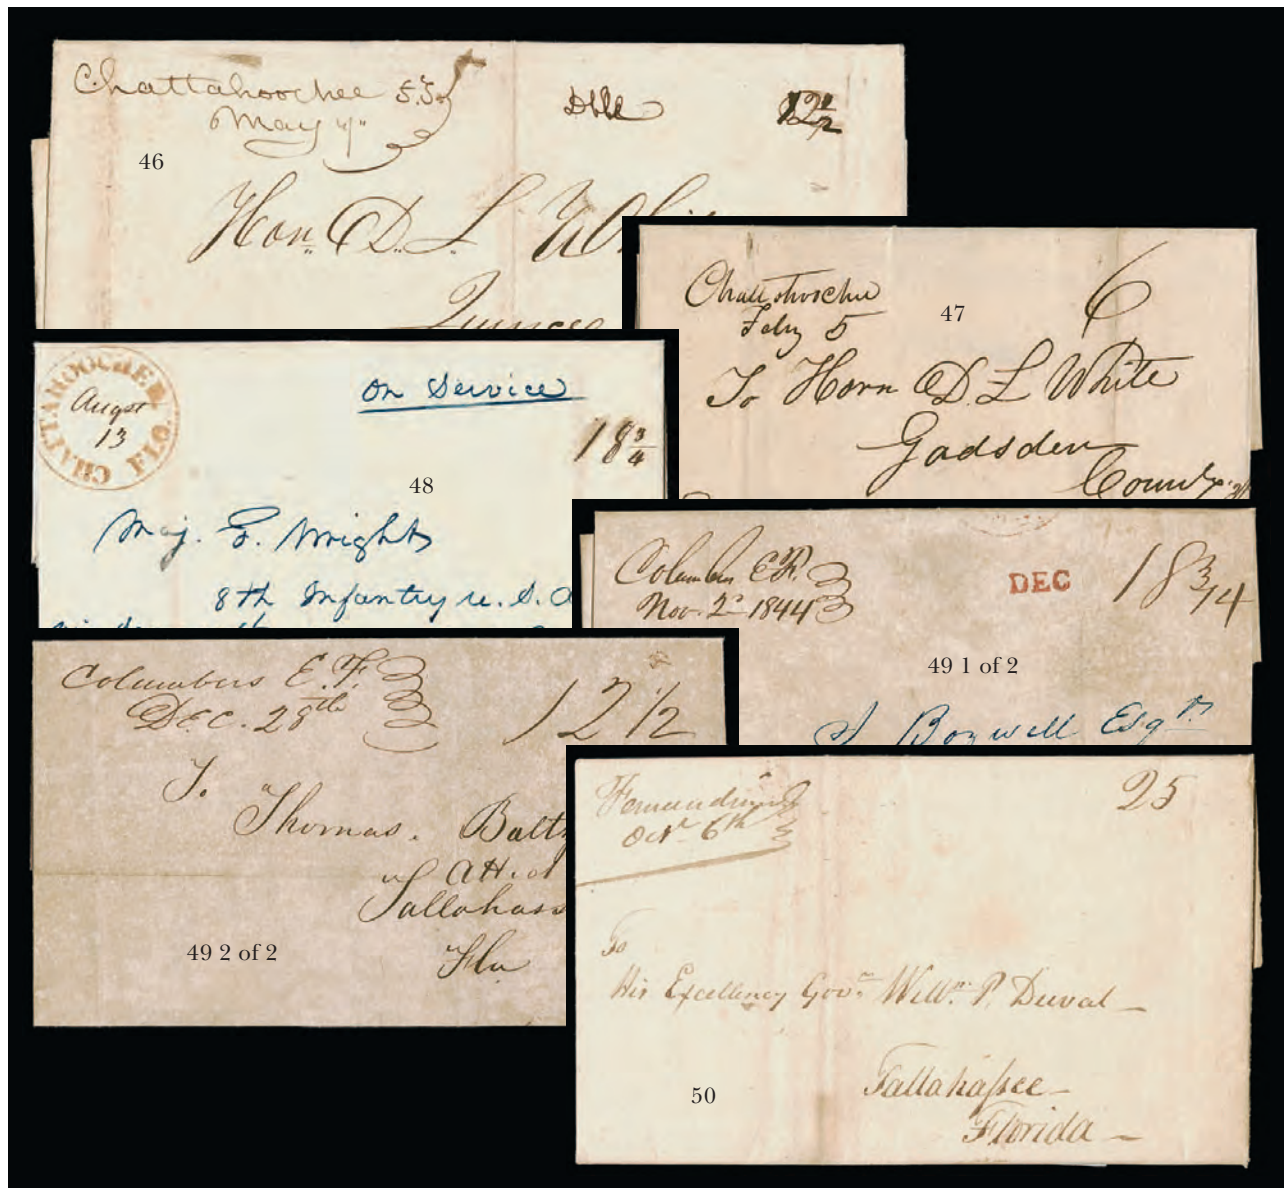 Chattahoochee F.T.
May 7"
Dble
12½
46
Hon. D. L. Whi
Quincy
Chattahoochee
Feby 5
6
47
To Honn D. L White
Gadsden
County
CHATTAHOOCHEE FLO.
Augst
13
On Service
18¾
48
Maj. G. Wright
8th Infantry U. S. A
Columbus E.F.
Nov. 2d 1844
DEC
18¾
49 1 of 2
Bozwell Esqr
Columbus E. F.
DEC. 28th
12½
To
Thomas. Baltz
Att. at
Tallahass
Fla
49 2 of 2
Fernandina
Octr 6th
25
To
His Excellency Govr. Willm. P. Duval
50
Tallahassee
Florida